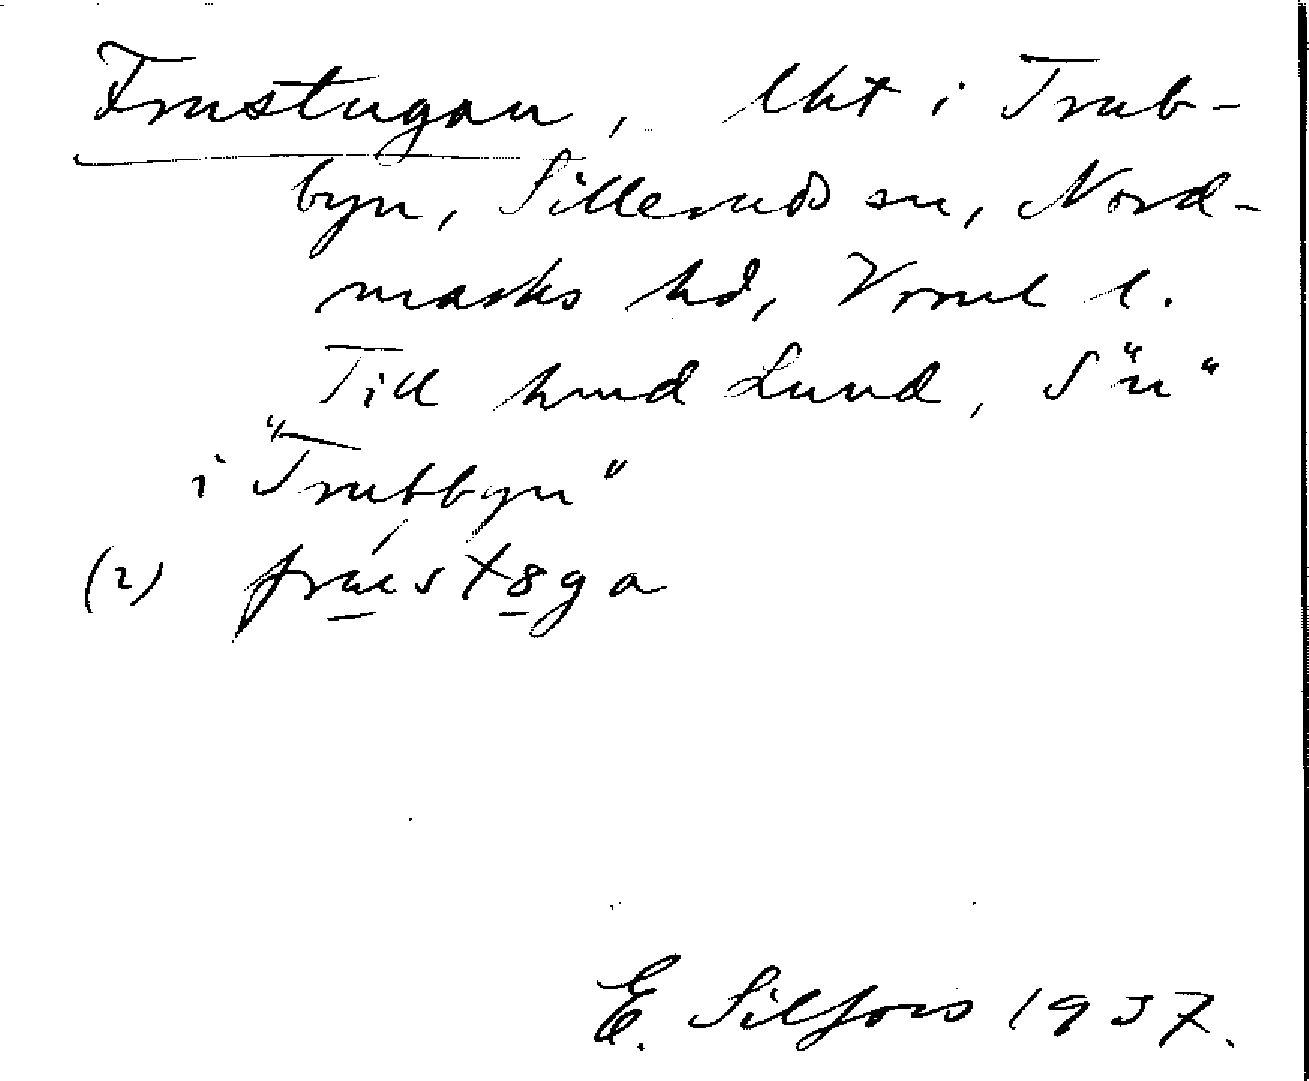 Frustugan, lht i Trub-
byn, Silleruds sn, Nord-
marks hd, Vrml l.
Till hmd Lund, S "n"
i "Trubbyn"
(2) 
E. Silfors 1937.